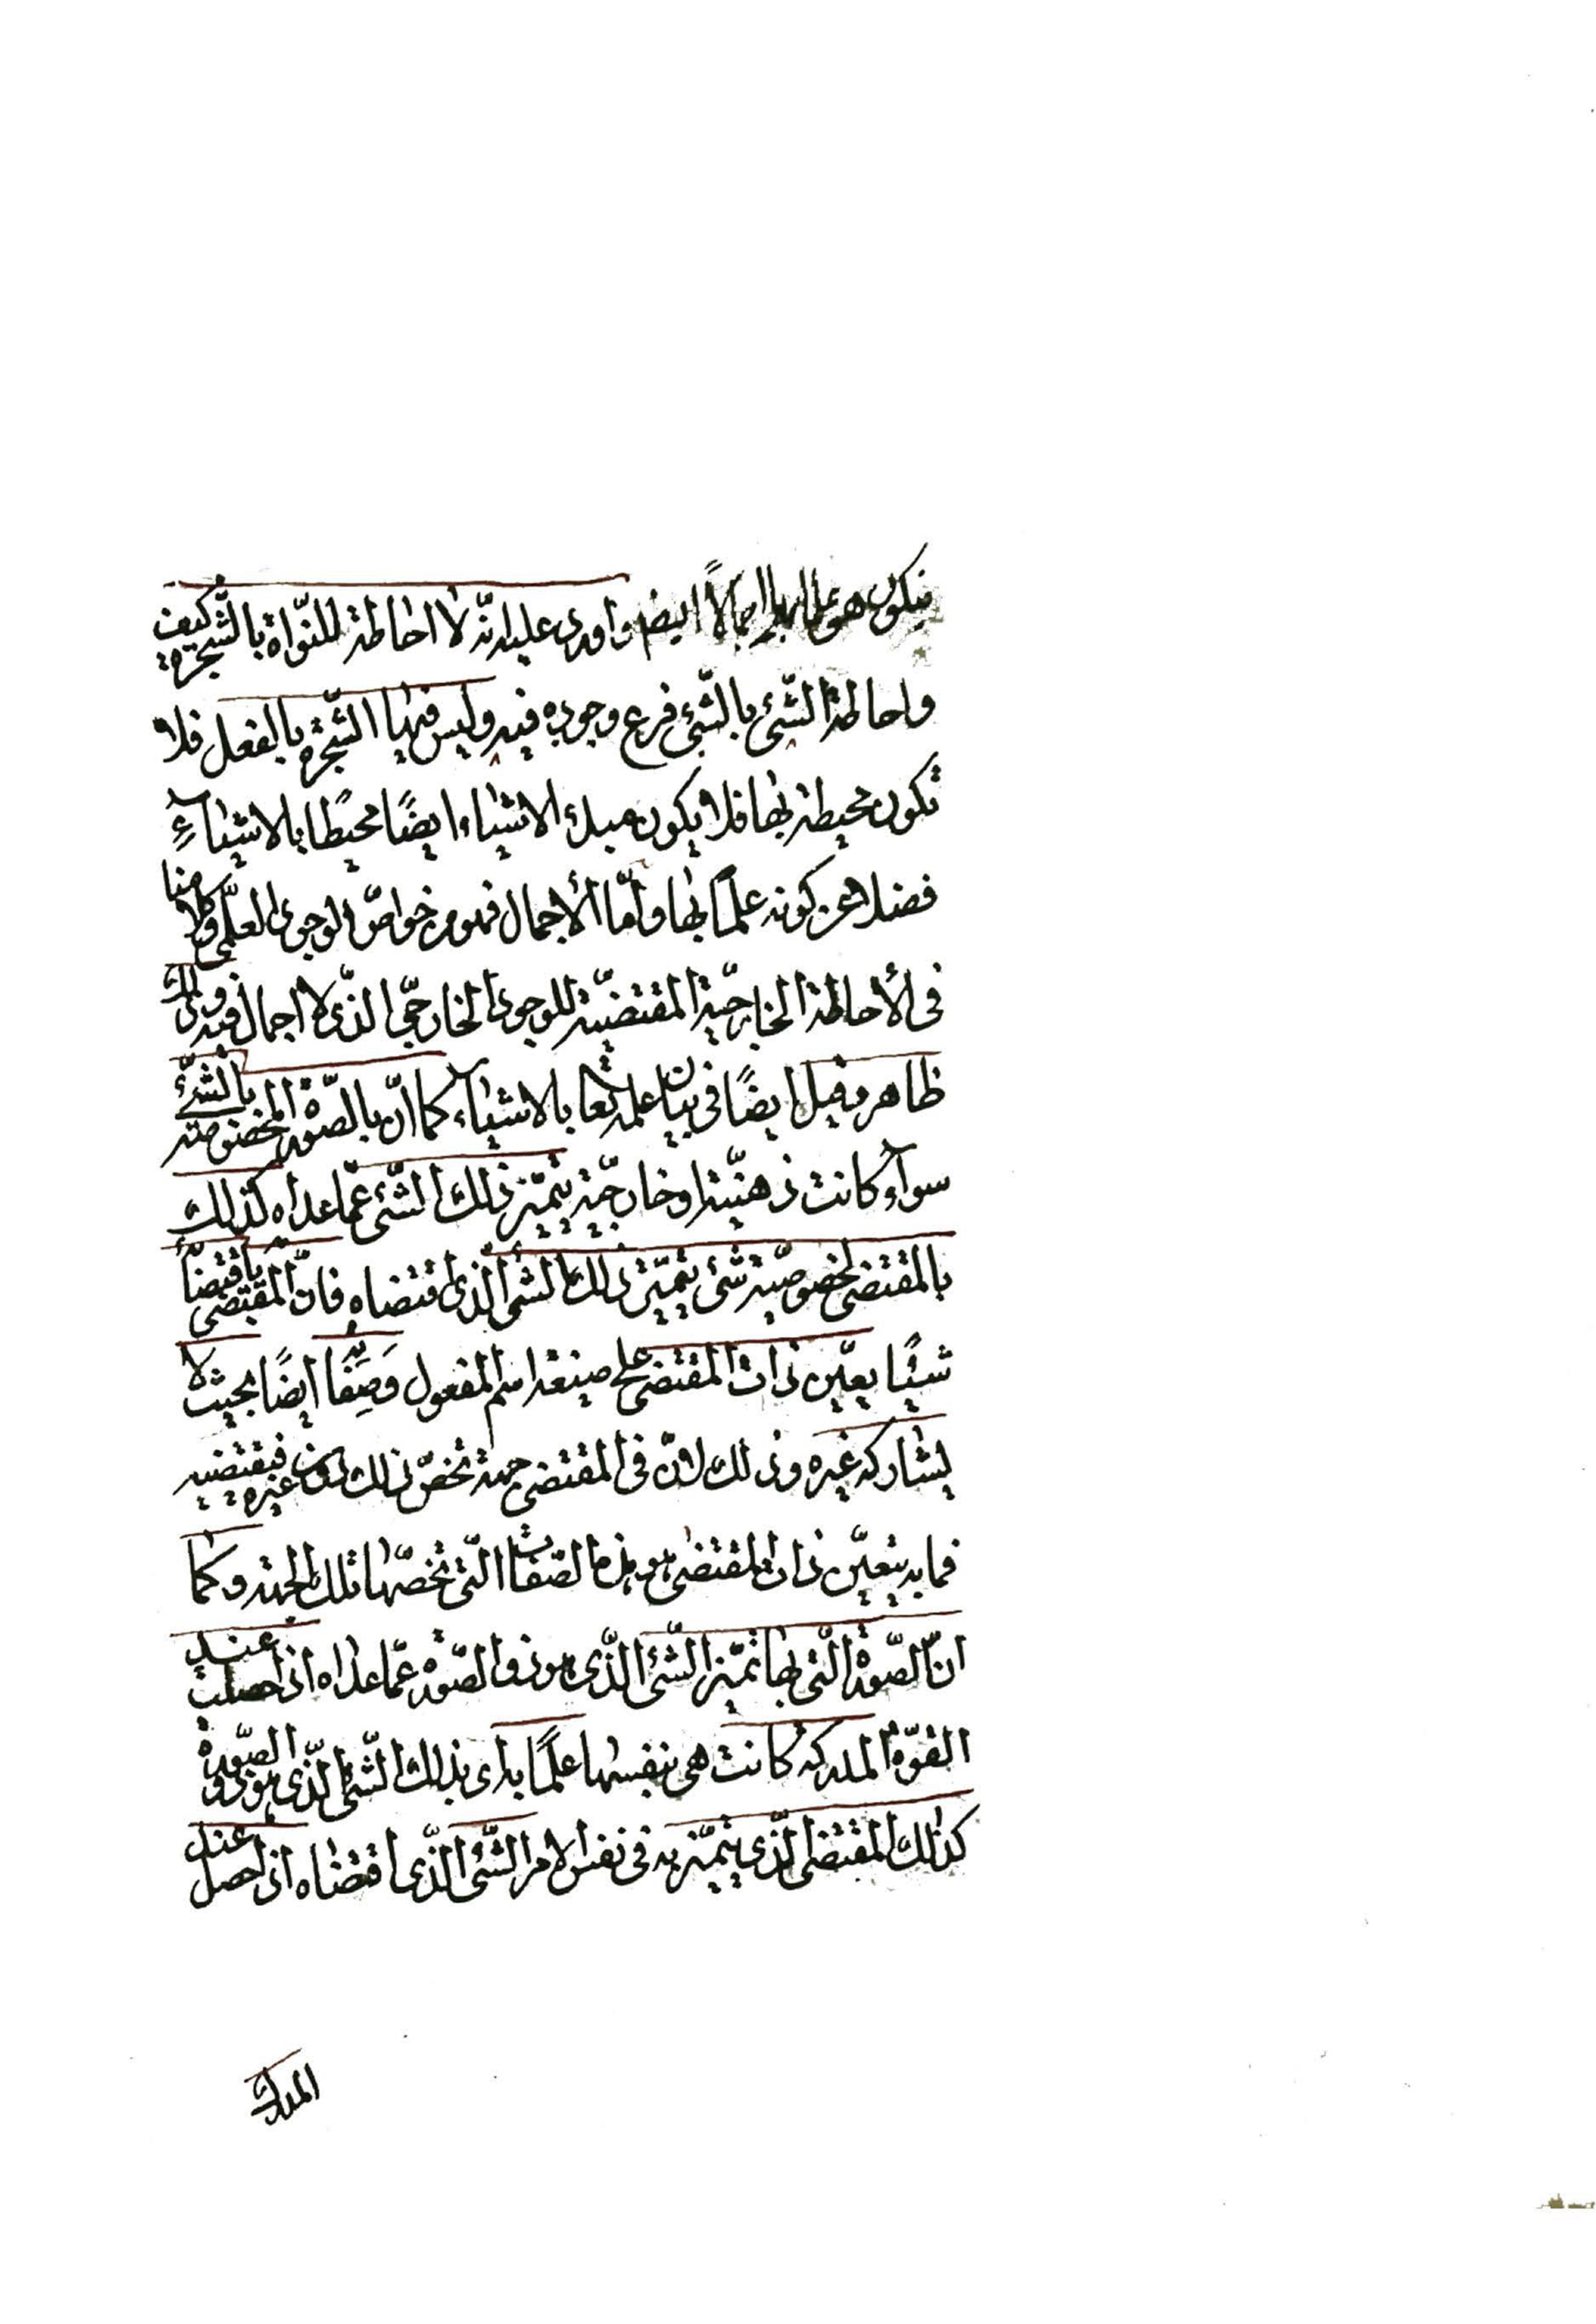 فيكون هو علما بها اجمالاً ايضا واورد عليه انّه لا احاطة للنّواة بالشّجرة كيف
واحاطة الشّئ بالشّئ فرع وجوده فيه وليس فيها الشّجرة بالفعل فلا
تكون محيطة بها فلا يكون مبدء الاشياء ايضًا محيطًا بالاشيآءِ
فضلا عن كونه علمًا بها وامّا الأجمال فهو من خواصّ الوجود العلمّى وكلامنا
فى الأحاطة الخارجيّة المقتضيّة للوجود الخارجّى الذّى لا اجمال فيه وذلك
ظاهر وقيل ايضًا فى بيان علمه تعا بالاشيآء كما انّ بالصّورة المخصوصة بالشّئ
سوآء كانت ذهنيّة او خارجيّة يتميّز ذلك الشّئ عمّا عداه كذلك
بالمقتضى لخصوصيّة شئ يتميّز ذلك الشئ الّذى اقتضاه فانّ المقتضى باقتضائه
شيئًا يعيّن ذات المقتضى على صيغة اسم المفعول وَصِفَاته ايضًا بحيث لا
يشاركه غيره وذلك لانّ فى المقتضى جهة تخصّ ذلك دون غيره فيقتضيه
فما به يتعيّن ذات المقتضى هو هذه الصّفات الّتى تخصّها تلك الجهة وكما
انّ الصّورة الّتى بها تميّز الشّئ الذّى هو ذو الصّورة عمّا عداه اذا حصلت عند
القوّة المدركة كانت هى بنفسها علمًا به اى بذلك الشّئ الّذى هو ذو الصّورة
كذلك المقتضى الّذى يتميّز به فى نفس الامر الشّئ الذّى اقتضاه اذا حصل عند
المدرك